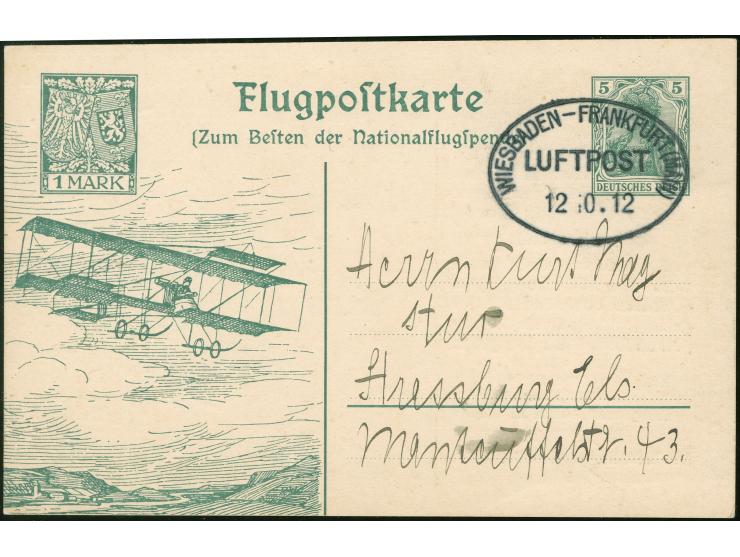 Flugpostkarte
(Zum Besten der Nationalflugspen
1 MARK
5 5
DEUTSCHES REICH
WIESBADEN-FRANKFURT (MAIN)
LUFTPOST
12 10. 12
Herrn Kurt May
Strassburg Els.
Manteuffelstr. 43.